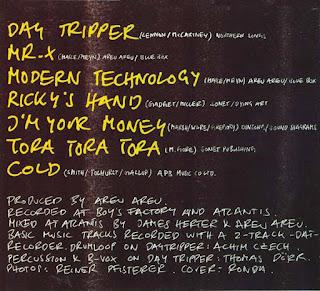 DAY TRIPPER (LENNON/McCARTNEY) NORTHERN SONGS
MR. X (HAHLE/MEYN) AREU AREU/BLUE BOX
MODERN TECHNOLOGY (HAHLE/MEYN) AREU AREU/BLUE BOX
RICKY'S HAND (GADGET/MILLER) SONET/DYING ART
I'M YOUR MONEY (MARSH/WARE/GREGORY) DINSONG/SOUND DIAGRAMS
TORA TORA TORA (M. GORE) SONET PUBLISHING
COLD (SMITH/TOLHURST/GALLUP) APB MUSIC CO LTD.
PRODUCED BY AREU AREU.
RECORDED AT BOY'S FACTORY AND ATLANTIS.
MIXED AT ATLANTIS BY JAMES HERTER & AREU AREU.
BASIC MUSIC TRACKS RECORDED WITH A 2-TRACK-DAT-
RECORDER. DRUMLOOP ON DAYTRIPPER: ACHIM CZECH.
PERCUSSION & B-VOX ON DAY TRIPPER: THOMAS DÖRR.
PHOTOS: REINER PFISTERER. COVER: RONDA.